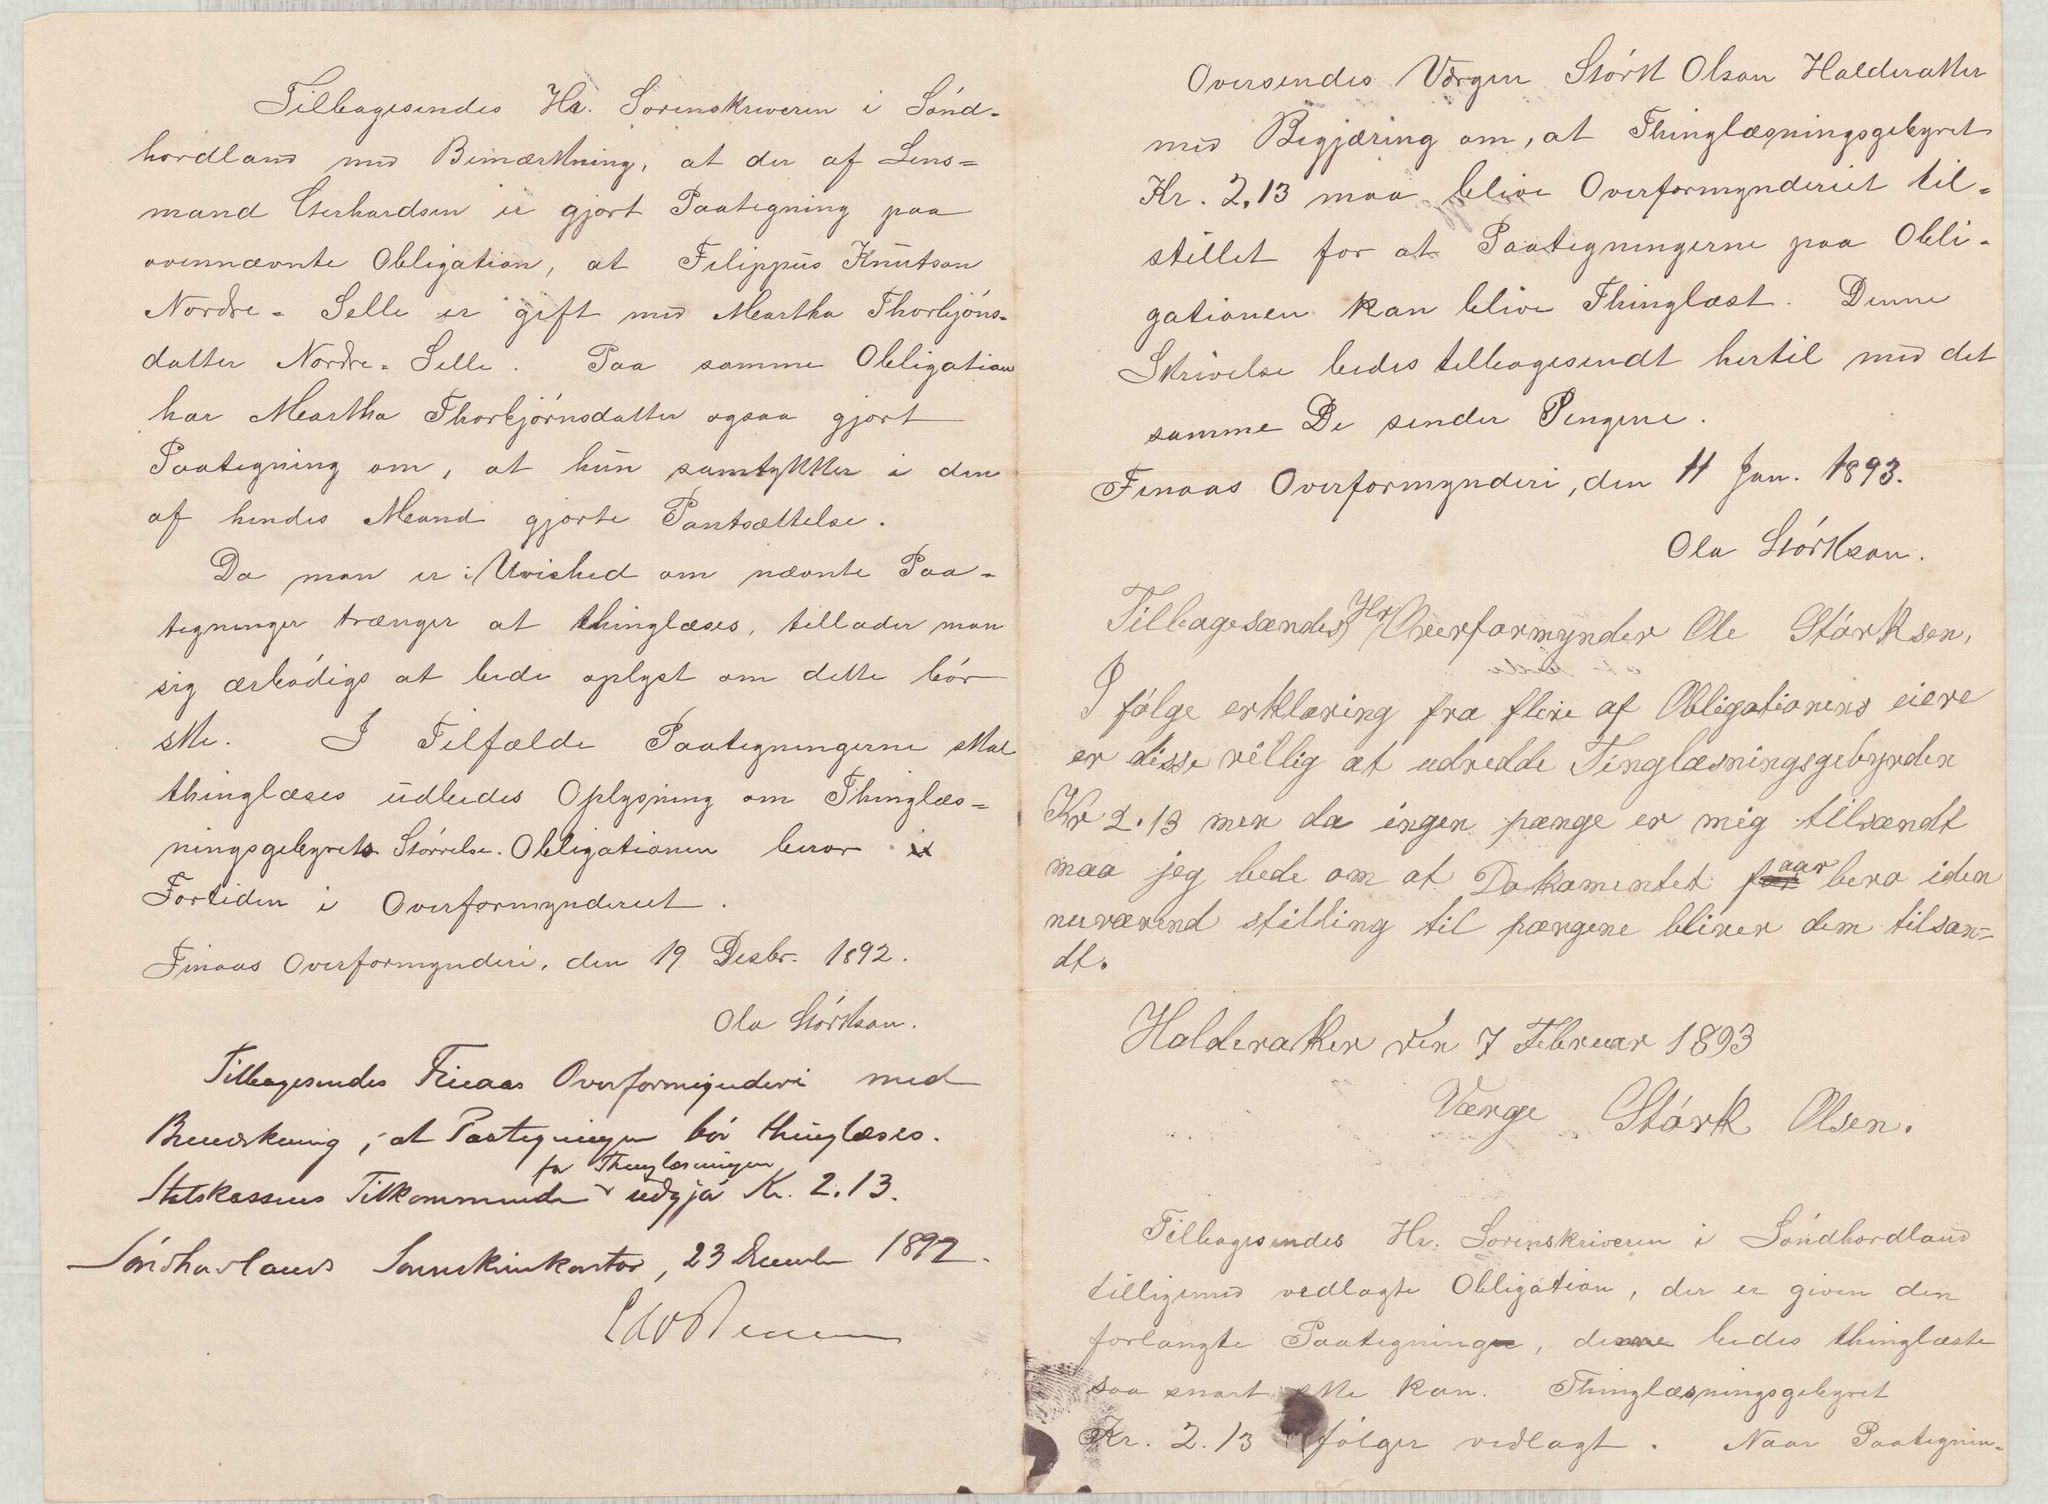 Tilbagesendes Hr. Sorenskriveren i Sónd-
hordland med Bemærkning, at der af Lens-
mand Gerhardsen er gjort Paategning paa
ovennævnte Obligation, at Filippus Knutson
Nordre-Selle er gift med Martha Thorbjóns-
datter Nordre-Selle. Paa samme Obligation
har Martha Thorbjórnsdatter ogsaa gjort
Paategning om, at hun samtykker i den
af hendes Mand gjorte Pantsættelse.
Da man er i Uvished om nævnte Paa-
tegninger trænger at thinglæses, tillader man
sig ærbódigs at bede oplyst om dette bór
ske. I Tilfælde Paategningerne skal
thinglæses udbedes Oplysning om Thinglæs-
ningsgebyrets Stórrelse. Obligationen beror
Fortiden i Overformynderiet.
Finaas Overformynderi, den 19 Desbr. 1892.
Ola Stórkson.
Tilbagesendes Finaas Overformynderi med
Bemærkning, at Paategningen bór thinglæses.
Statskassens Tilkommende for Thinglæsningen udgjó Kr. 2.13.
Sóndhorlands Sorenskriverkontor, 23 December 1892.
Oversendes Værgen Stórk Olson Halderaker
med Begjæring om, at Thinglæsningsgebyret
Kr. 2.13 maa blive Overformynderiet til-
stillet for at Paategningerne paa Obli-
gationen kan blive Thinglæst. Denne
Skrivelse bedes tilbagesendt hertil med det
samme De sender Pengene.
Finaas Overformynderi, den 11 Jan. 1893.
Ola Stórkson.
Tilbagesændes Hr Overformynder Ole Stórksen,
I fólge erklæring fra flere af Obligationens eiere
er disse villig at udredde Tinglæsningsgebyrden
Kr 2.13 men da ingen pænge er mig tilsændt
maa jeg bede om at Dokamentet faar bero iden
nuværend stilling til pængene bliver dem tilsan-
dt.
Halderaker den 7 Februar 1893
Værge Stórk Olsen.
Tilbagesendes Hr. Sorenskriveren i Sóndhordland
tilligemed vedlagte Obligation, der er given den
forlangte Paategning, denne bedes thinglæste
saa snart ske kan. Thinglæsningsgebyret
Kr. 2.13 fólger vedlagt. Naar Paategnin-